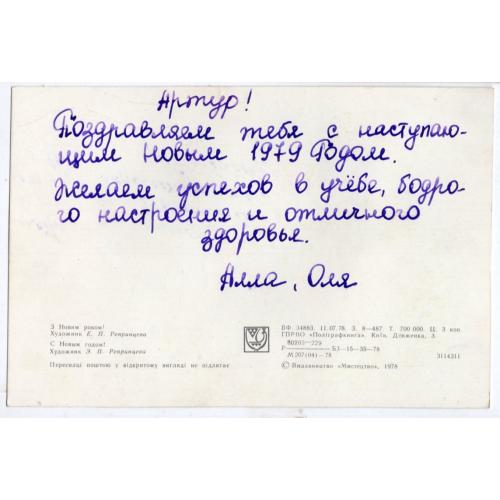 Артур!
Поздравляем тебя с наступаю-
щим Новым 1979 Годом.
Желаем успехов в учёбе, бодро-
го настроения и отличного
здоровья.
Алла, Оля
З Новим роком!
Художник Е. П. Репринцева
С Новым годом!
Художник Э. П. Репринцева
Пересилці поштою у відкритому вигляді не підлягає
БФ 34883. 11.07.78. З. 8—487. Т. 700 000. Ц. 3 коп.
ГПРВО «Поліграфкнига». Київ, Довженка, 3.
80203—229
Р М207(04)—78 БЗ—15—35—78 3114211
© Видавництво «Мистецтво», 1978